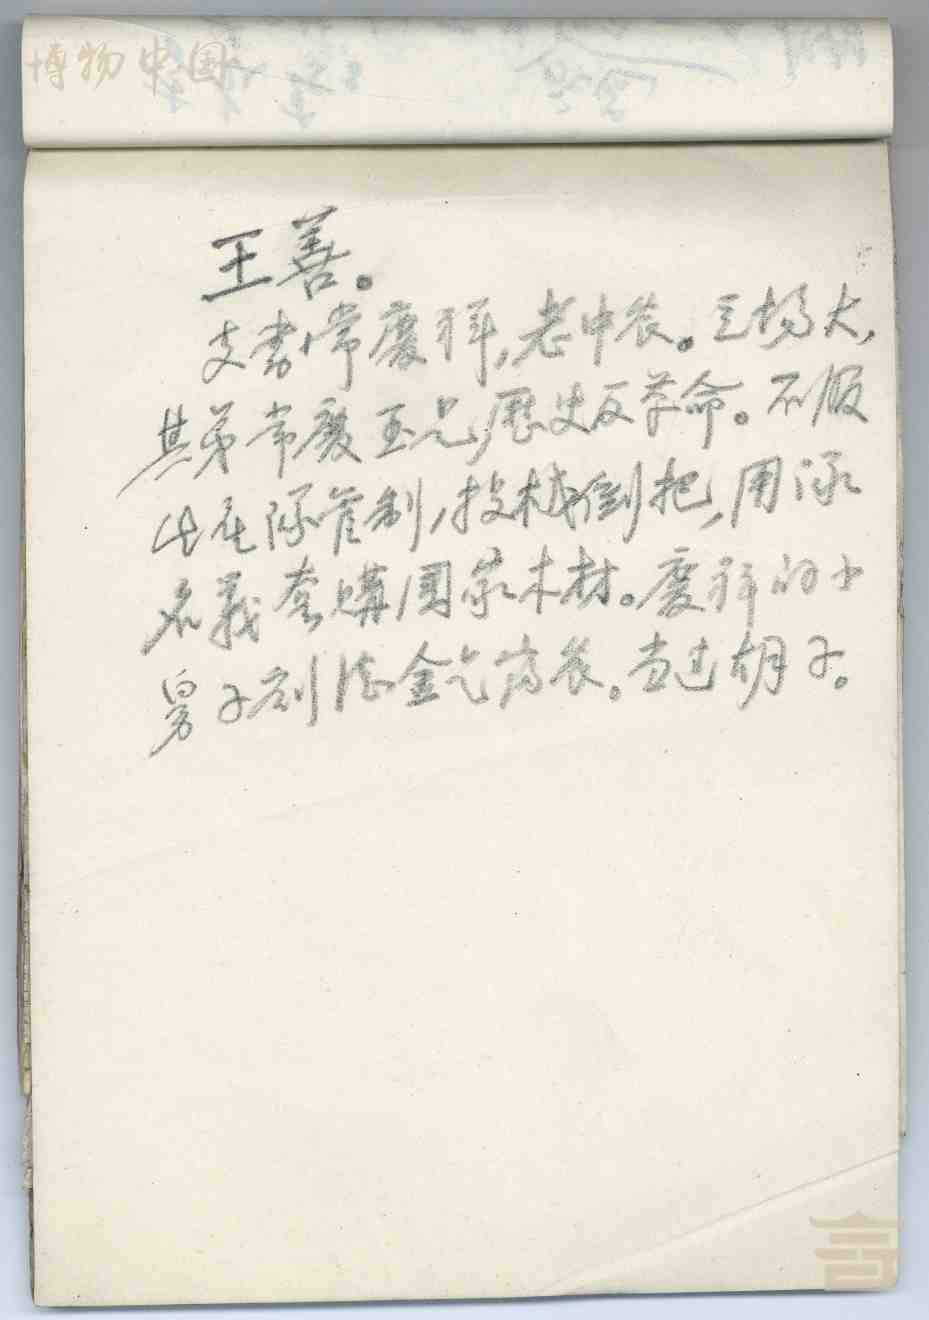 博物中国
王善。
支书常庆祥,老中农。立场大,
其弟常庆玉兄,歷史反革命。不服
生产队管制,投机倒把,用队
名義套購国家木材。庆祥的小
舅子刘德金乞富农。当过胡子。